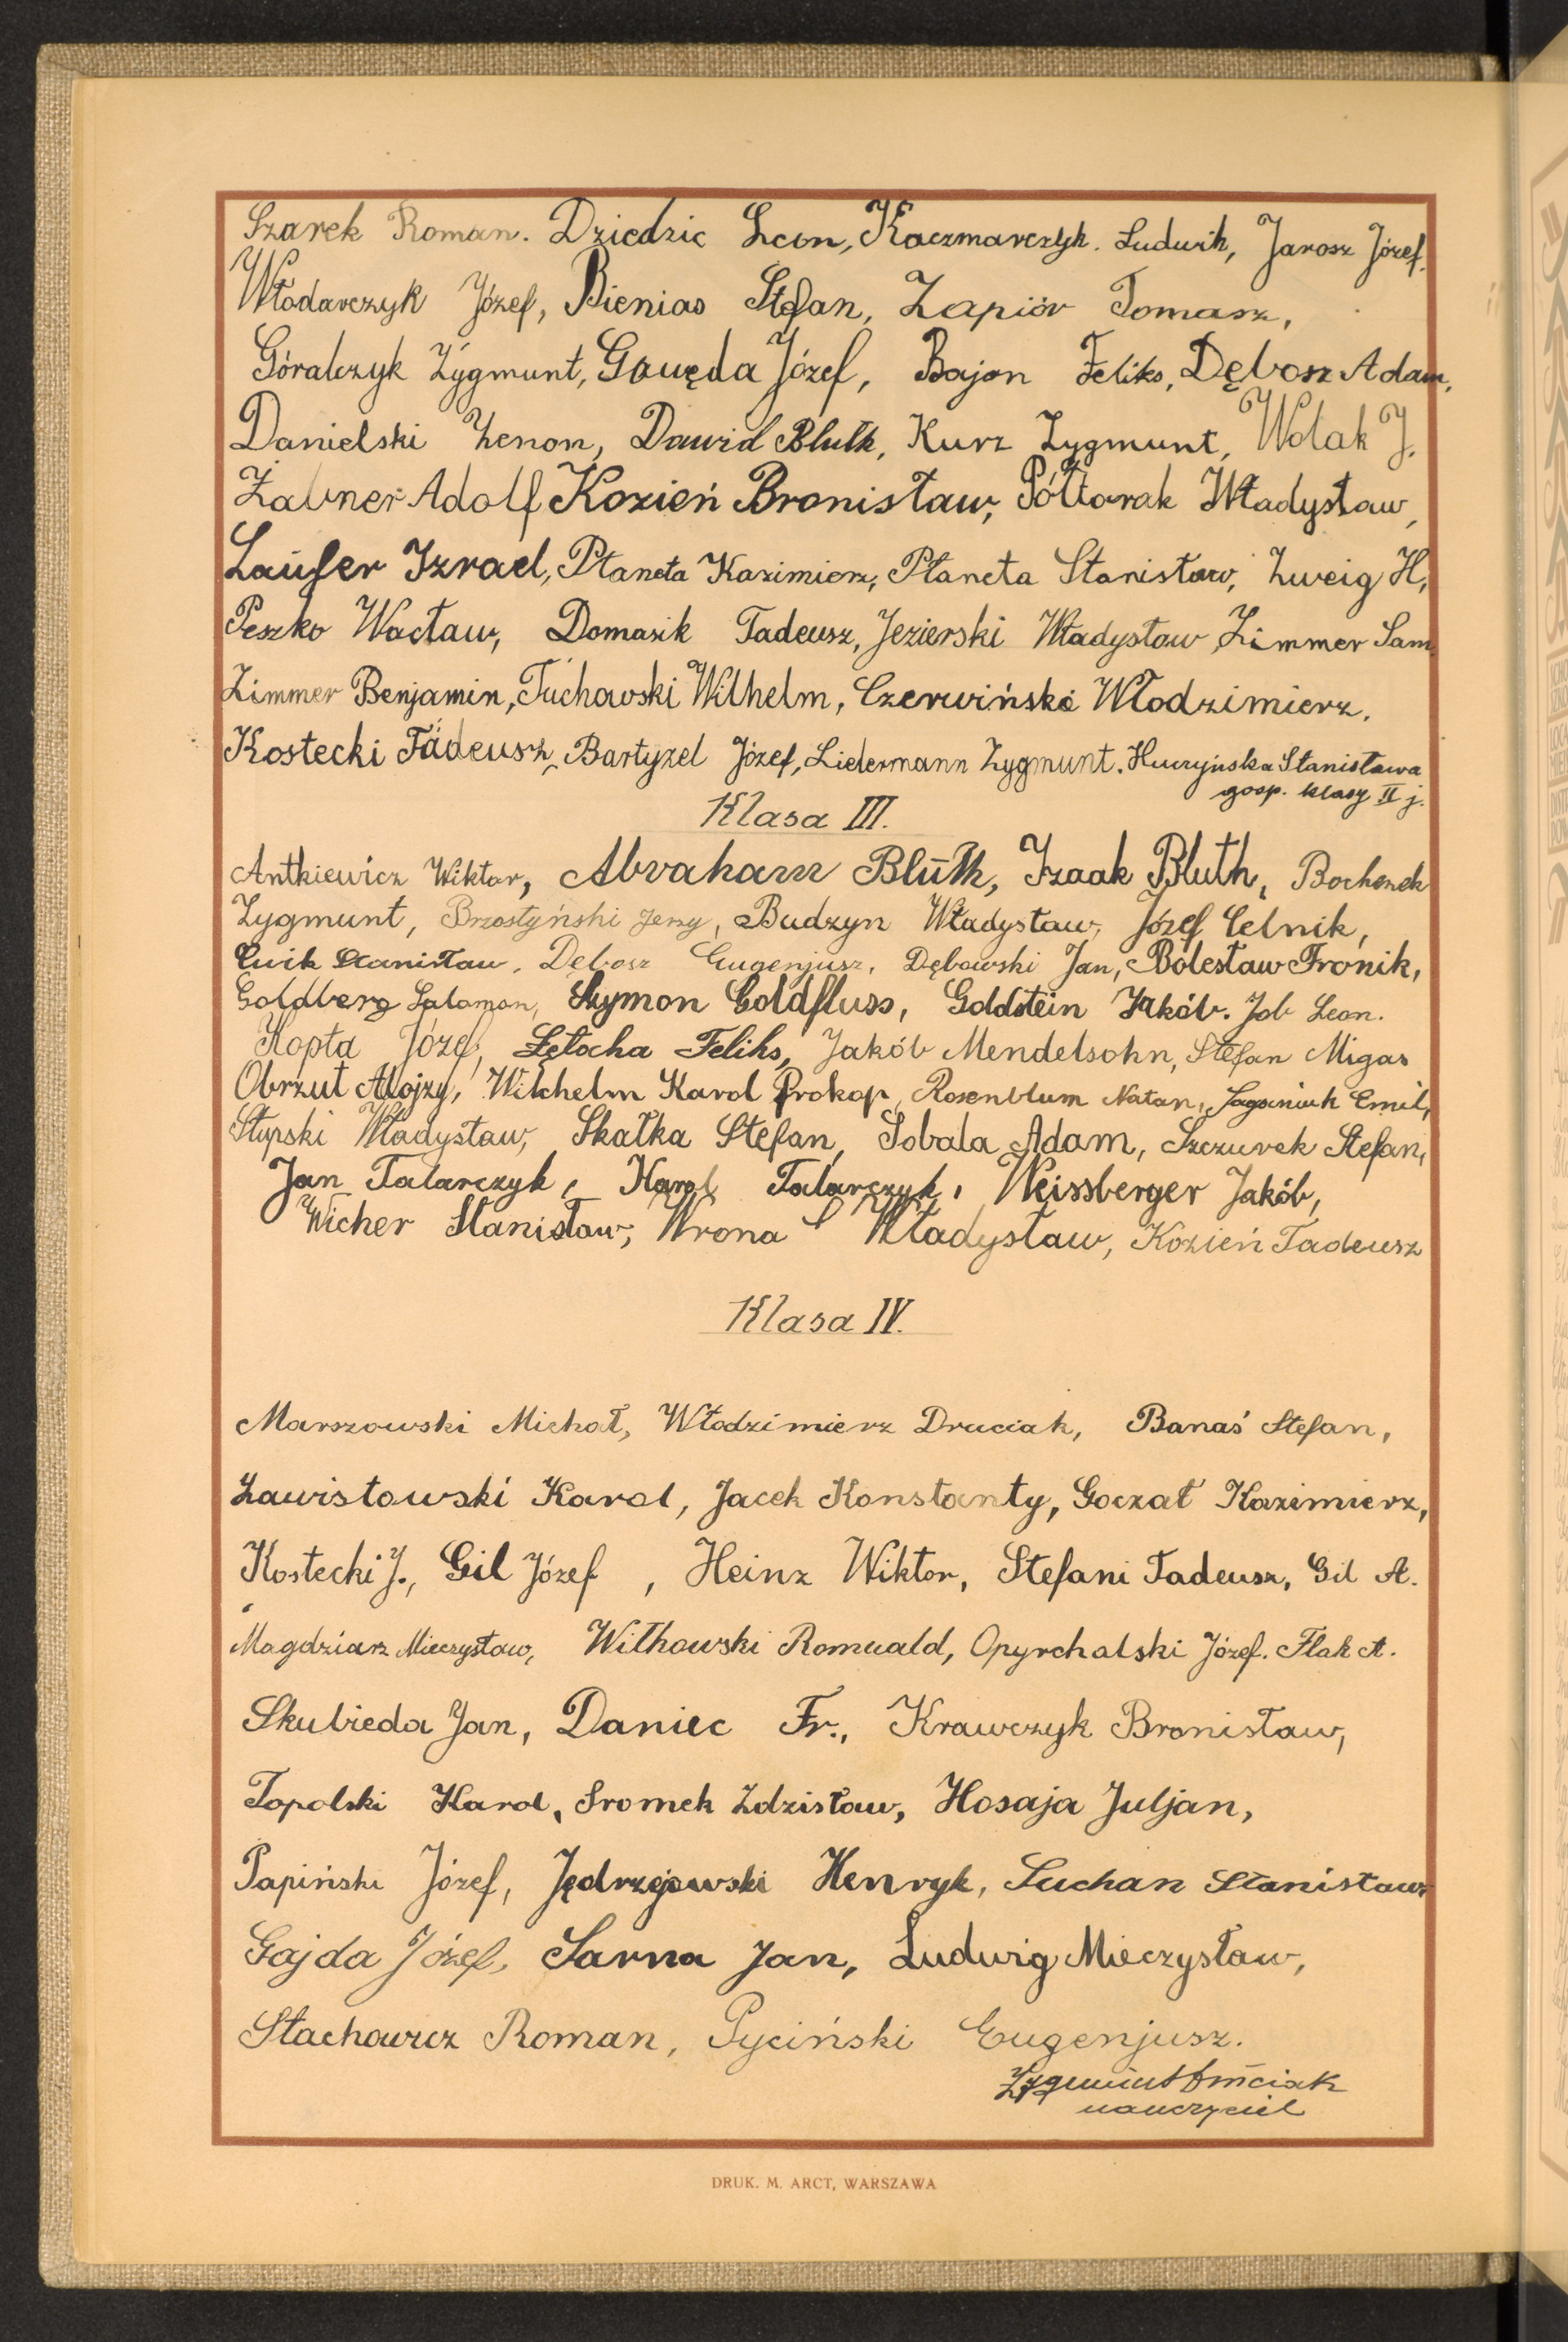 Szarek Roman. Dziedzic Leon, Kaczmarczyk. Ludwik, Jarosz Józef.
Włodarczyk Józef, Bienias Stefan, Zapiór Tomasz,
Góralczyk Zygmunt, Gawęda Józef, Bajon Feliks, Dębosz Adam,
Danielski Zenon, Dawid Bluth, Kurz Zygmunt, Wolak J.
Żabner Adolf Kozień Bronisław, Półtorak Władysław,
Laufer Izrael, Płaneta Kazimierz, Płaneta Stanisław, Zweig H,
Peszko Wacław, Domasik Tadeusz, Jezierski Władysław, Zimmer Sam
Zimmer Benjamin, Tuchowski Wilhelm, Czerwiński Włodzimierz.
Kostecki Tadeusz, Bartyzel Józef, Liedermann Zygmunt. Huczyńska Stanisława
gosp. klasy II j.
Klasa III.
Antkiewicz Wiktor, Abraham Blūth, Izaak Bluth, Bochenek
Zygmunt, Brzostyński Jerzy, Budzyn Władysław, Józef Celnik,
Ćwik Stanisław, Debosz Eugenjusz, Dębowski Jan, Bolesław Fronik,
Goldberg Salomon, Szymon Goldfluss, Goldstein Jakób. Job Leon.
Kopta Józef, Łętocha Feliks, Jakób Mendelsohn, Stefan Migas
Obrzut Alojzy, Wilchelm Karol Prokop, Rosenblum Natan, Emil,
Słupski Władysław, Skałka Stefan, Sobala Adam, Szczurek Stefan,
Jan Talarczyk, Karol Talarczyk, Weissberger Jakób,
Wicher Stanisław, Wrona Władysław, Kozień Tadeusz
Klasa IV.
Marszowski Michał, Włodzimierz Druciak, Banaś Stefan,
Zawistowski Karol, Jacek Konstanty, Goczał Kazimierz,
Kostecki J., Gil Józef, Heinz Wiktor, Stefani Tadeusz, Gil A.
Magdziarz Mieczysław, Witkowski Romuald, Opyrchalski Józef. Flak A.
Skubieda Jan, Daniec Fr., Krawczyk Bronisław,
Topolski Karol, Sromek Zdzisław, Hosaja Juljan,
Papiński Józef, Jędrzejowski Henryk, Suchan Stanisław
Gajda Józef, Sarna Jan, Ludwig Mieczysław,
Stachowicz Roman, Pyciński Eugenjusz.
Zygmunt
nauczyciel
DRUK. M. ARCT, WARSZAWA